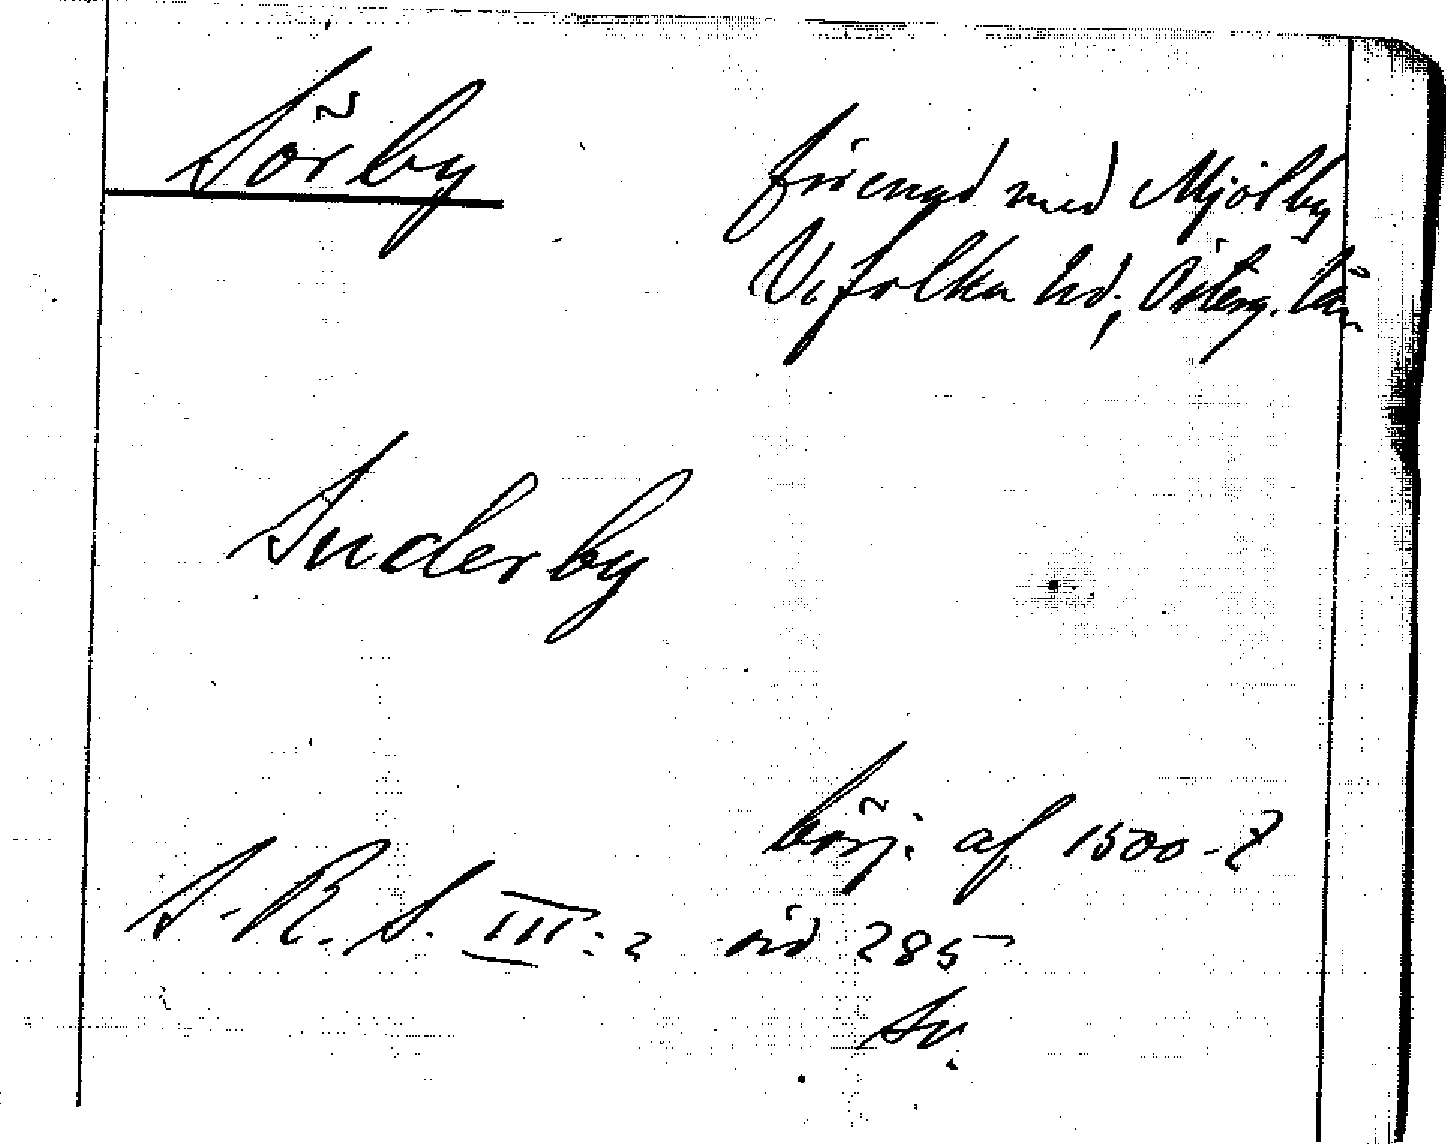 Sörby
förenad med Mjölby
Vifolka hd, Österg. län
Suderby
börj. af 1500-t
S.R.S. III:2 sid 285
Sv.